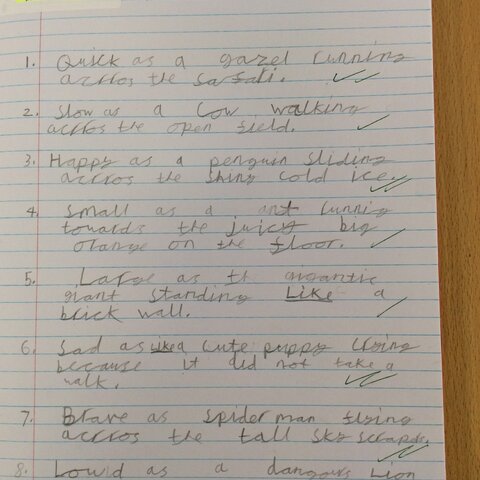 1. Quick as a gazel running
accros the safari.
2. Slow as a cow walking
accros the open field.
3. Happy as a penguin sliding
accros the shiny cold ice.
4. Small as a ant runnig
towards the juicy big
orange on the floor.
5. Large as the gigantic
giant standing Like a
brick wall.
6. Sad as a cute puppy crying
because it did not take a
walk.
7. Brave as spider man flying
accros the tall sky scraprs.
8. Lowid as a dangours Lion